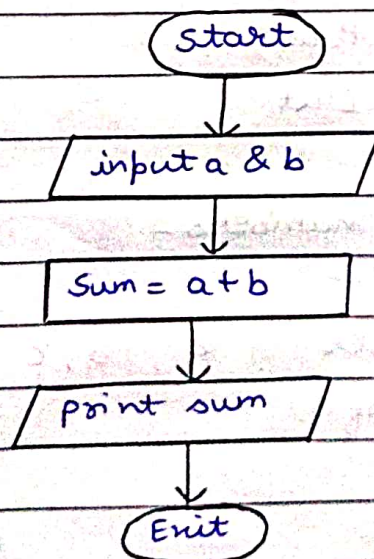 start
input a & b
Sum = a+b
print sum
Exit